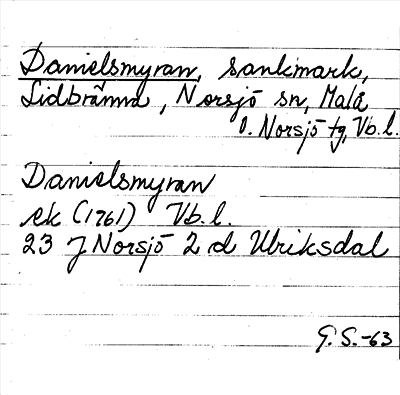 Danielsmyran, sankmark,
Lidbränna, Norsjö sn, Malå
o. Norsjö tg, Vb.l.
Danielsmyran
ek (1961) Vb.l.
23 J Norsjö 2 d Ulriksdal
G.S.-63